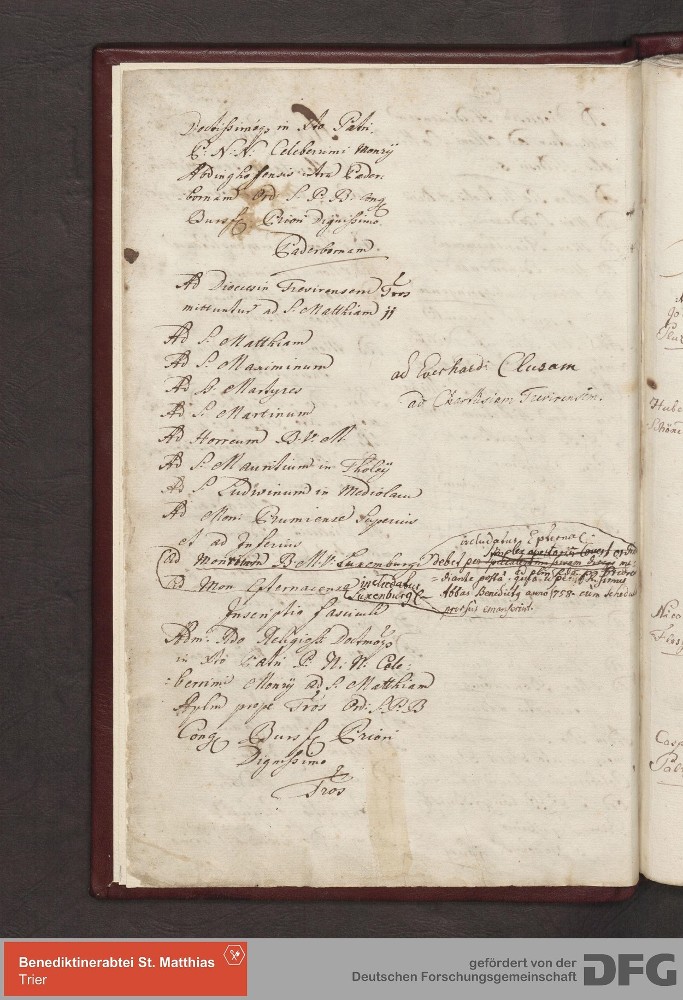 Doctissimoq3 in Xto Patri
P: N: N: Celeberrimi Monrÿ
Abdinghoffensis intra Pader-
bornam Ord S. P. B. Cong
Bursf Priori Dignissimo
Paderbornam
Ad Diœcesin Trevirensem Trôs
mittuntur ad S. Matthiam jj
Ad S. Matthiam
Ad S. Maximinum
Ad SS. Martyres
Ad S. Martinum
Ad Horreum B. V. M.
Ad S. Mauritium in Tholeÿ
Ad S. Ludwinum in Mediolacu
Ad Mon: Prumiense Superius
et ad Inferius
ad Everhardi Clusam
ad Carthusiam Trevirensem.
ad Monrium B. M. V. Luxemburgi
ad Mon Efternacense includatur
Luxenburg
includatur Epternac:
Debet per
-diante posta
Abbas Benedictg anno 1758. cum scheda
prorsus emanserint.
Inscriptio fasciculi
Adm: Rdo Religioso Doctmoq3
in Xto Patri P. N. N. Cele-
berrimi Monrÿ ad S. Matthiam
Aplum prope Trôs Ord: S. P. B
Cong Bursf Priori
Dignissimo
Trôs
Hube
Schöne
Nico
Casp
Benediktinerabtei St. Matthias
Trier
gefördert von der
Deutschen Forschungsgemeinschaft
DFG